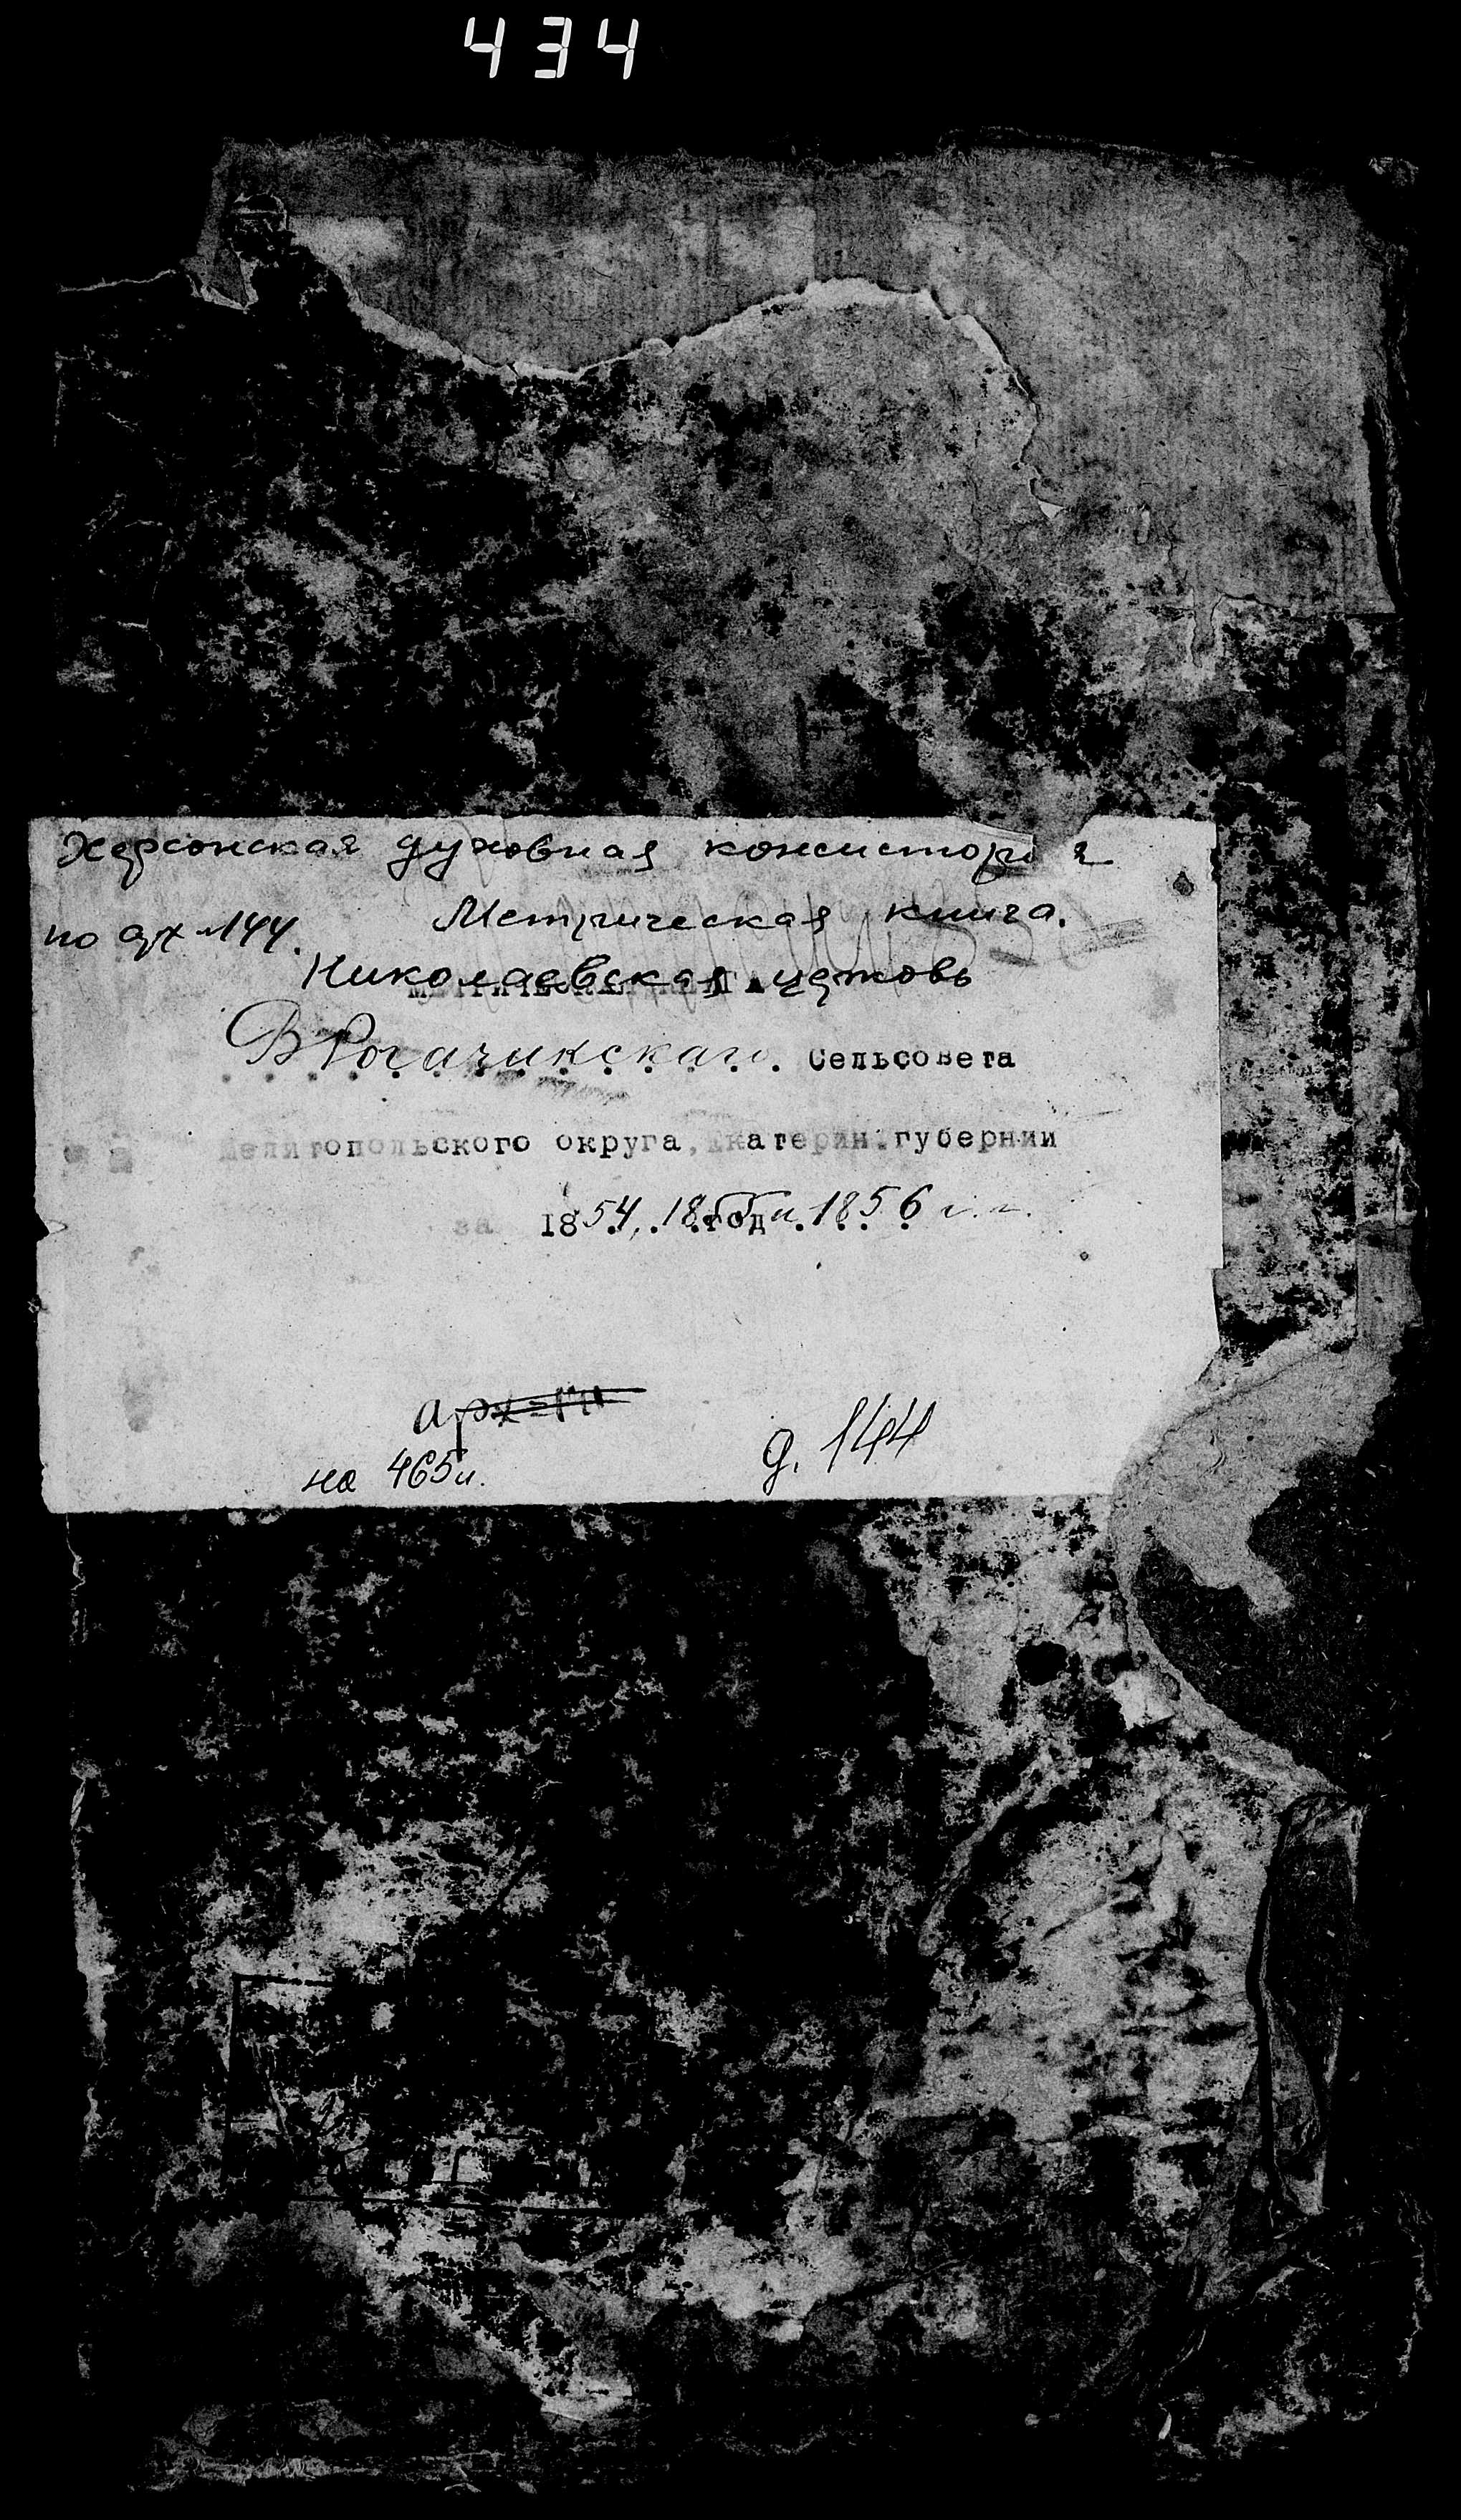 434
Херсонская духовная консистория
Метрическая книга.
по арх 144.
Николаевская церковь
В Рогачикскаго. Сельсовета
Мелитопольского округа, Екатерин. губернии
за 1854, 1855 и 1856 г.г.
на 465 л.
д. 144